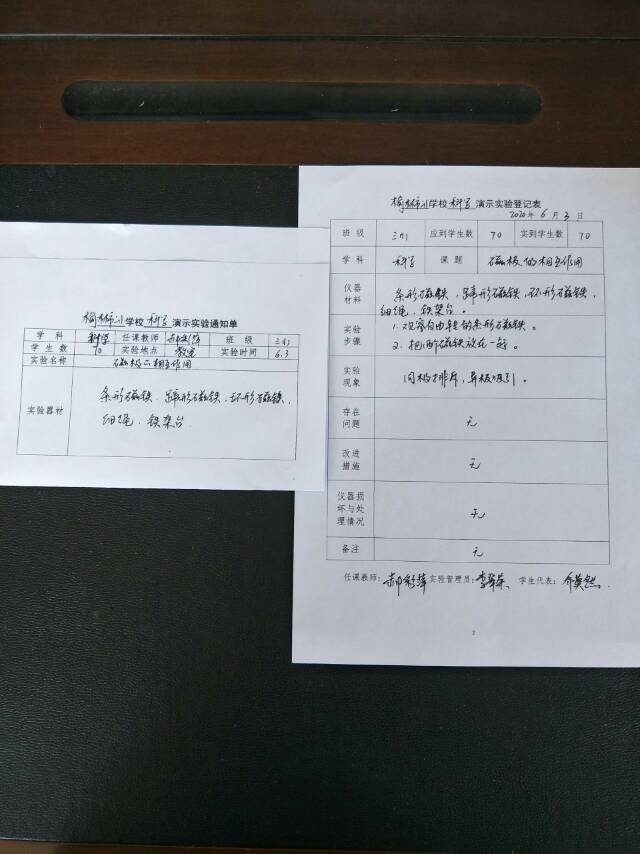 榆林市小学校科学演示实验通知单
学 科 科学 任课教师 郝彩萍 班 级 三(1)
学 生 数 70 实验地点 教室 实验时间 6.3
实验名称 磁极的相互作用
实验器材 条形磁铁、蹄形磁铁、环形磁铁、
细绳、铁架台
榆林市小学校科学演示实验登记表
2020年6月3日
班 级 三(1) 应到学生数 70 实到学生数 70
学 科 科学 课 题 磁极的相互作用
仪器
材料
条形磁铁,蹄形磁铁,环形磁铁,
细绳,铁架台。
实验
步骤
1.观察自由转的条形磁铁。
2.把两磁铁放在一起。
实验
现象
同极排斥,异极吸引。
存在
问题
无
改进
措施
无
仪器损
坏与处
理情况
无
备注 无
任课教师:郝彩萍 实验管理员: 学生代表: